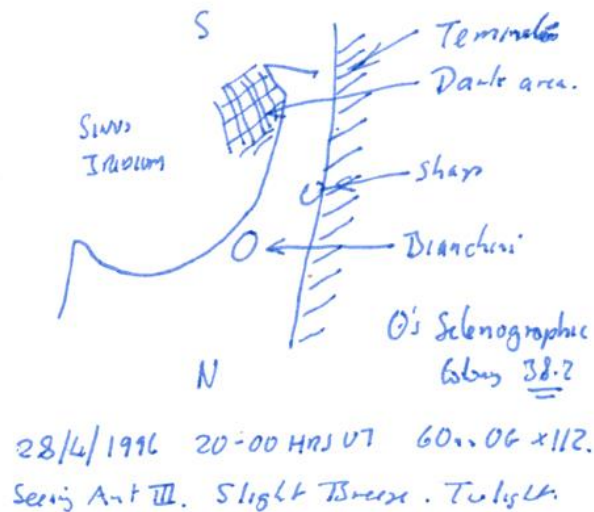 S
Terminator
Dark area.
Sinus
Iridium
Sharp
Bianchini
O's Selenographic
Colong 38.2
N
28/4/1996 20-00 HRS UT 60mm OG x112.
Seeing Ant III. Slight Breeze. Twilight.